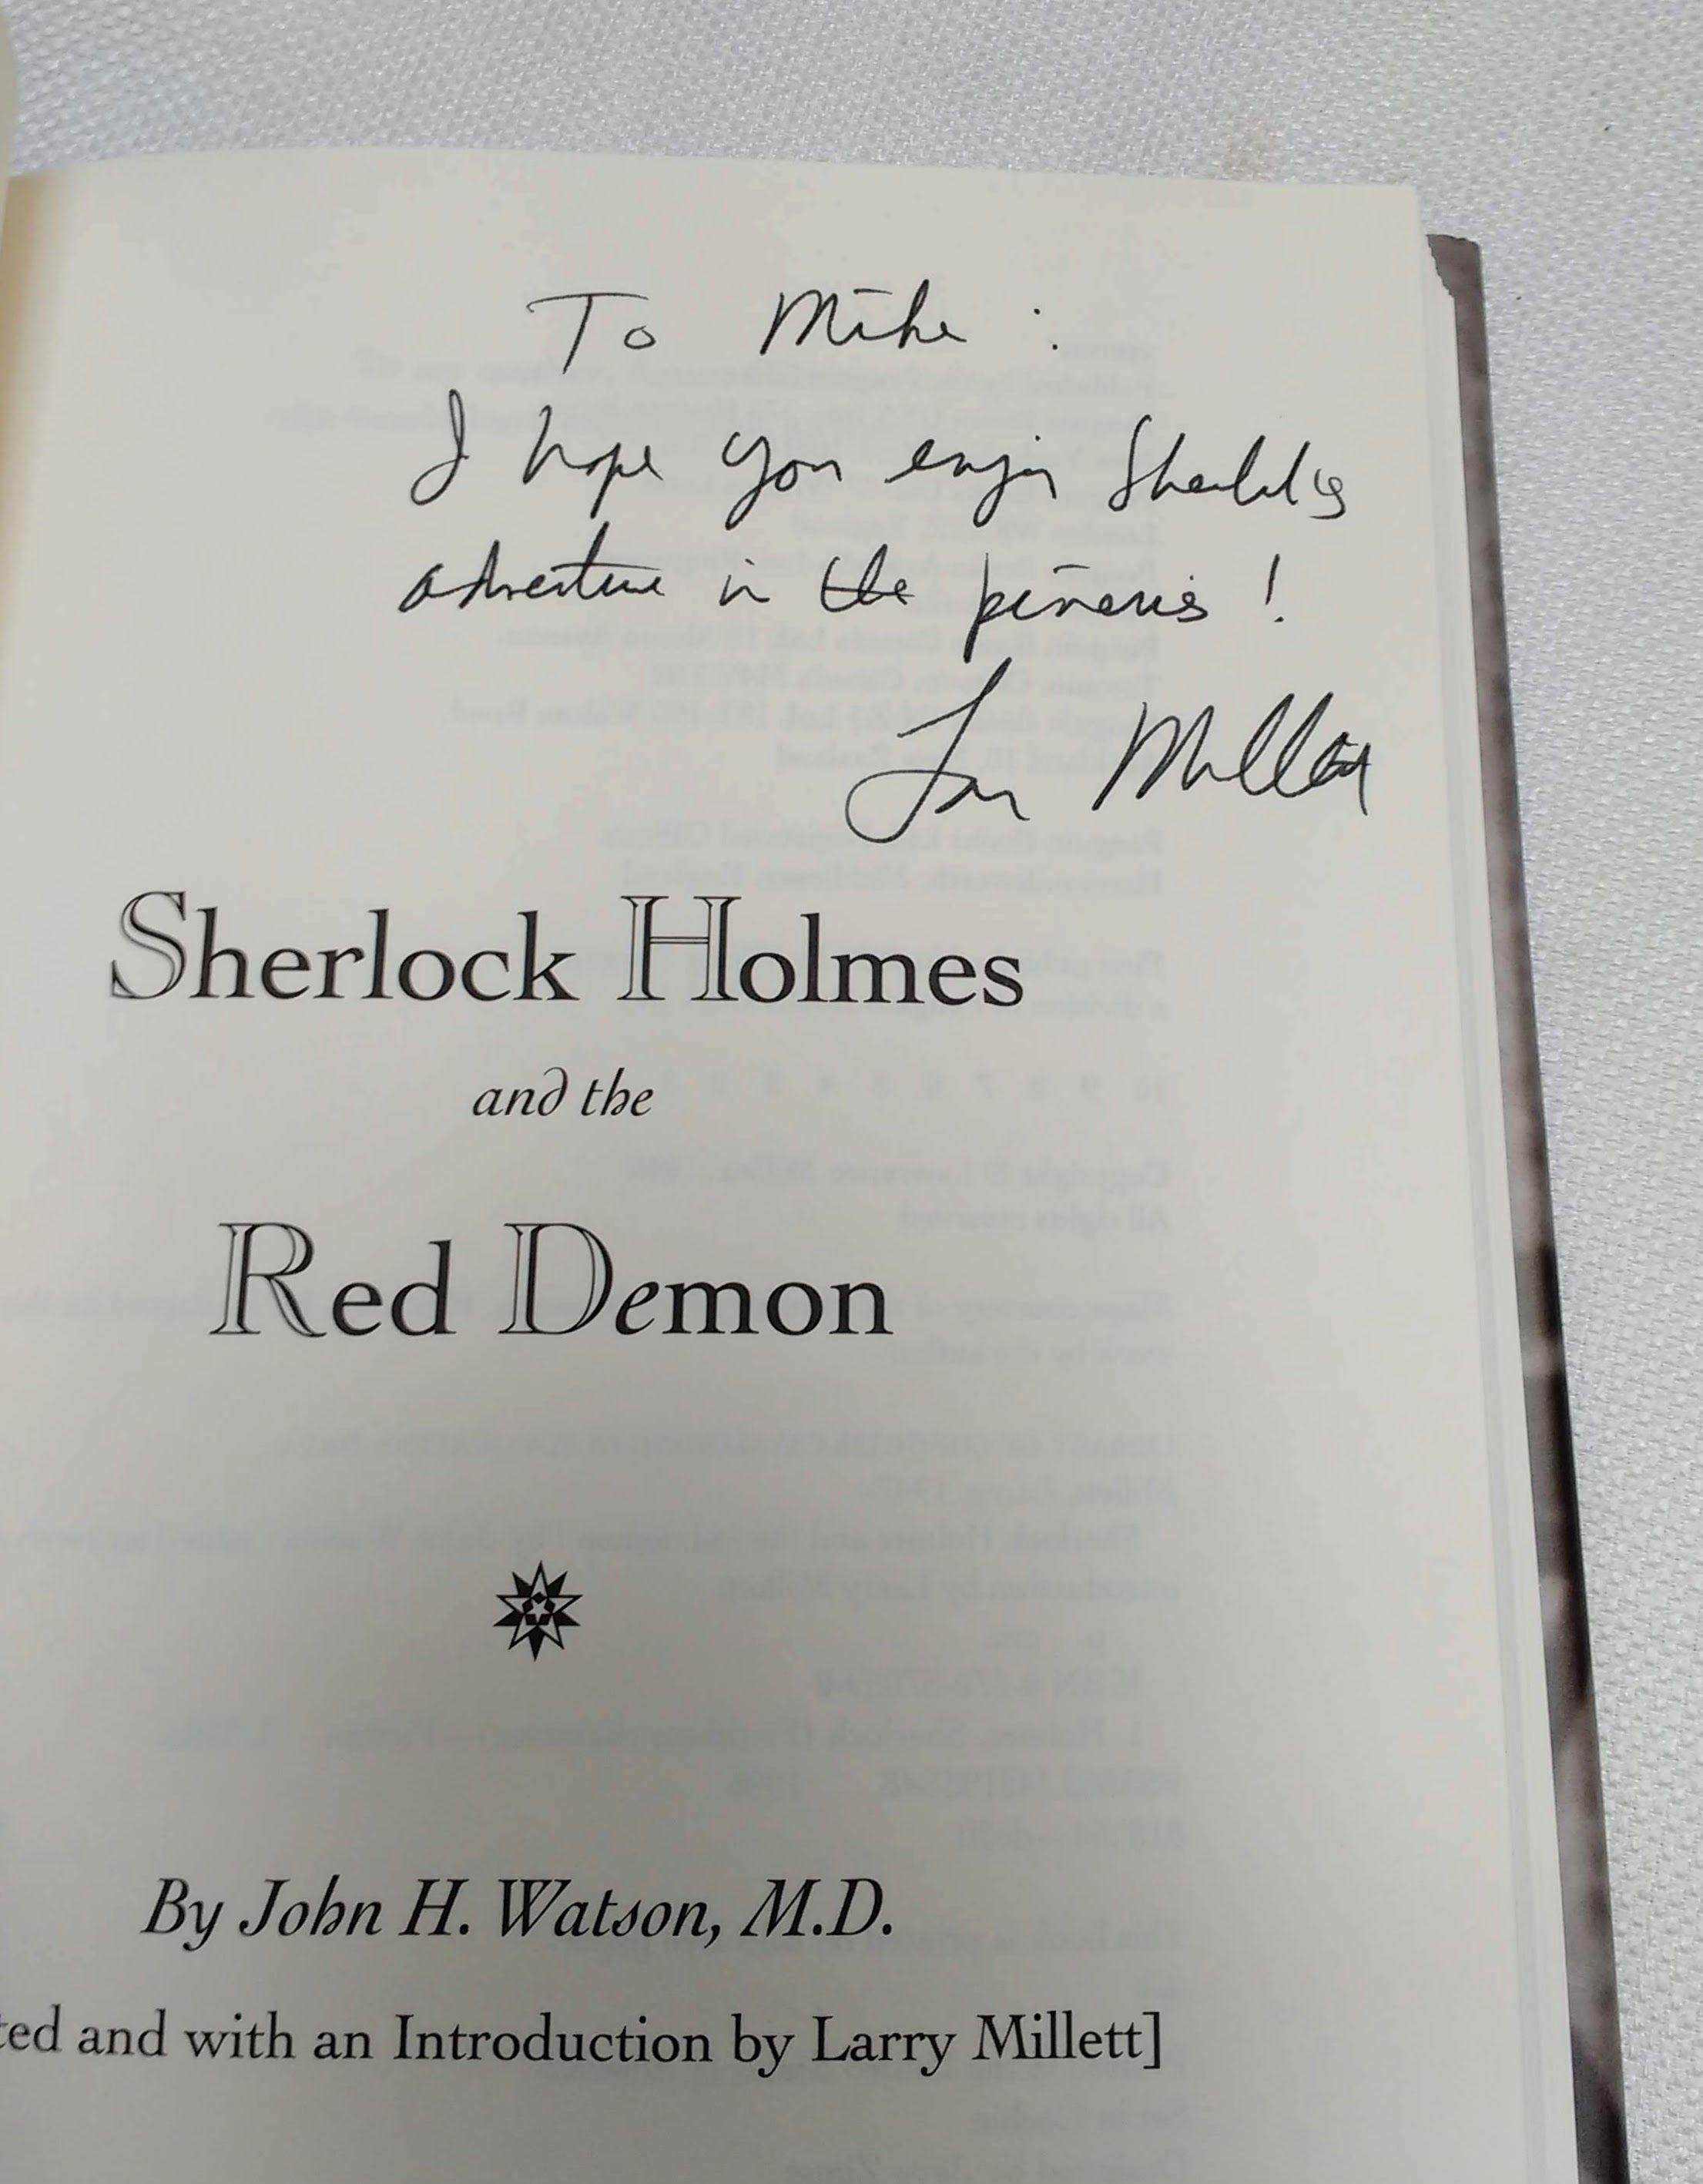 To Mike:
I hope you enjoy Sherlock's
adventure in the pineries!
Larry Millett
Sherlock Holmes
and the
Red Demon
By John H. Watson, M.D.
ted and with an Introduction by Larry Millett]